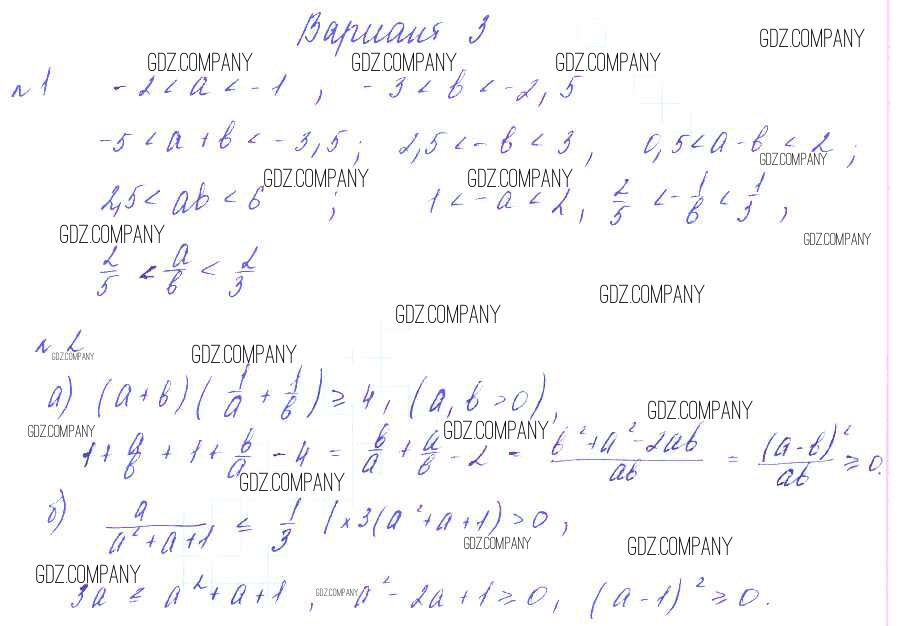 Вариант 3
GDZ.COMPANY
GDZ.COMPANY GDZ.COMPANY GDZ.COMPANY
№1 -2 < a < -1 , -3 < b < -2,5
-5 < a + b < -3,5 ; 2,5 < -b < 3 , 0,5 < a - b < 2 ;
GDZ.COMPANY
GDZ.COMPANY GDZ.COMPANY
2,5 < ab < 6 ; 1 < -a < 2 , 2/5 < -1/b < 1/3 ,
GDZ.COMPANY GDZ.COMPANY
2/5 < a/b < 2/3
GDZ.COMPANY
GDZ.COMPANY
№2
GDZ.COMPANY GDZ.COMPANY
а) (a + b)(1/a + 1/b) ≥ 4, (a, b > 0),
GDZ.COMPANY
GDZ.COMPANY GDZ.COMPANY
1 + a/b + 1 + b/a - 4 = b/a + a/b - 2 = (b² + a² - 2ab)/ab = (a - b)²/ab ≥ 0.
GDZ.COMPANY
б) a/(a² + a + 1) ≤ 1/3 | × 3(a² + a + 1) > 0 ,
GDZ.COMPANY GDZ.COMPANY
GDZ.COMPANY GDZ.COMPANY
3a ≤ a² + a + 1 , a² - 2a + 1 ≥ 0, (a - 1)² ≥ 0.